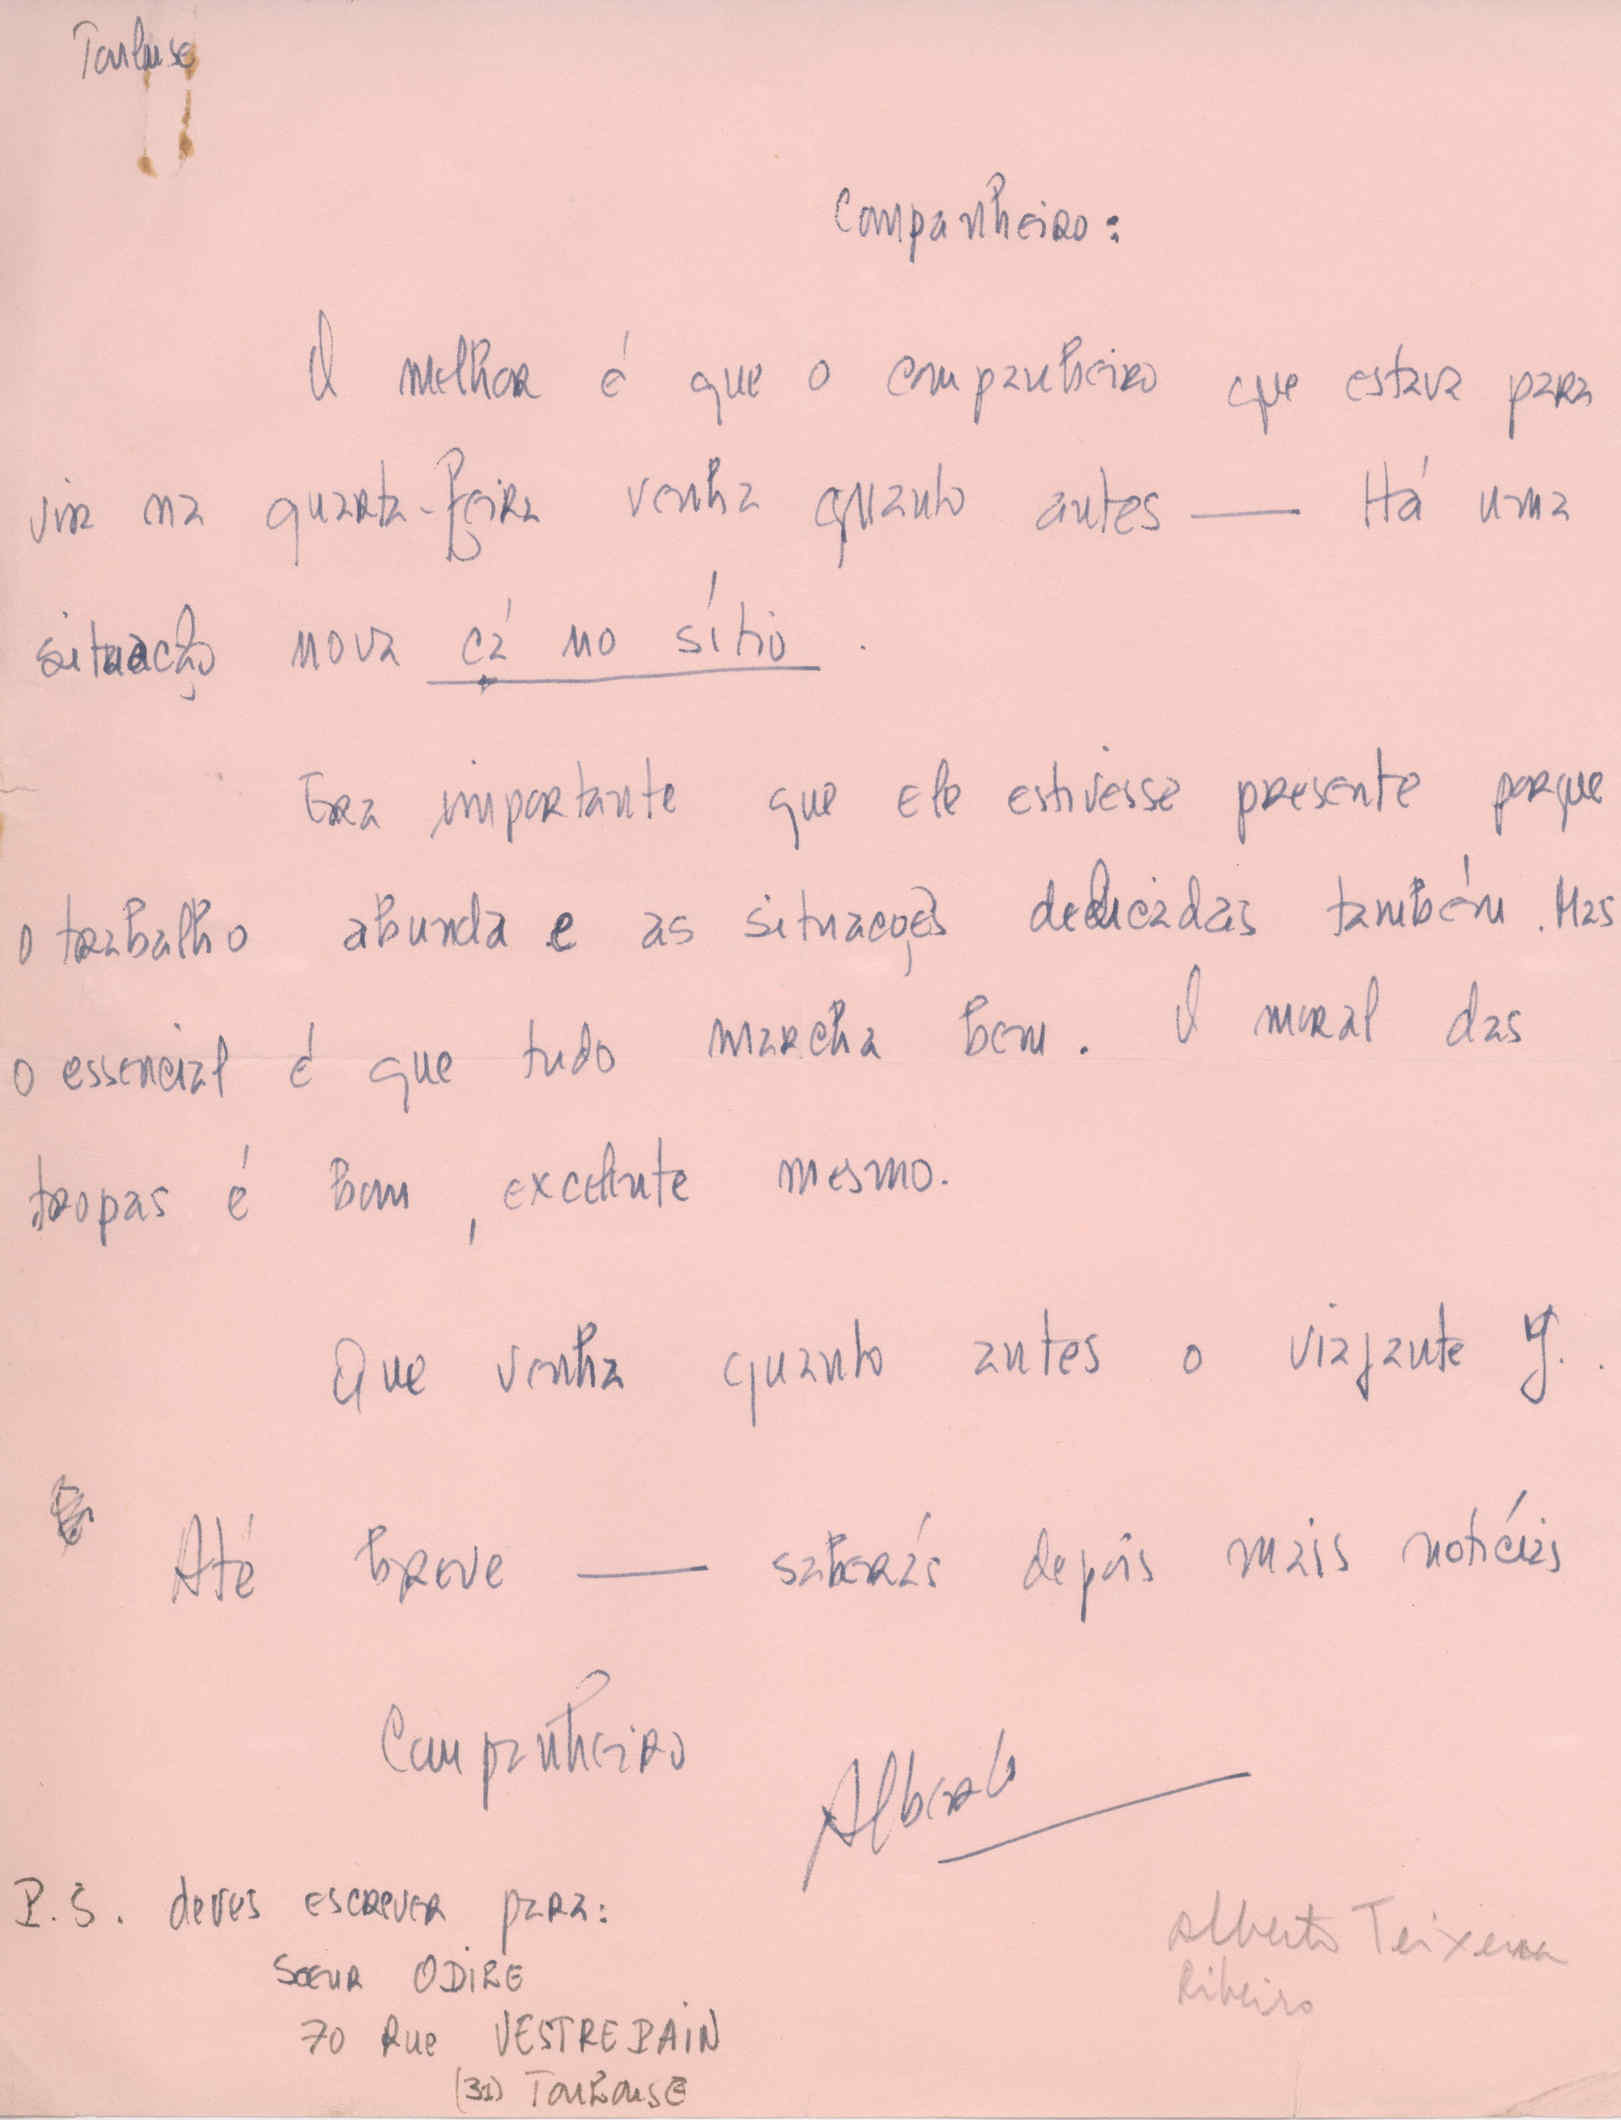 Toulouse
Companheiro:
O melhor é que o companheiro que estava para
vir na quarta-feira venha quanto antes — Há uma
situação nova cá no sítio.
Era importante que ele estivesse presente porque
o trabalho abunda e as situações delicadas também. Mas
o essencial é que tudo marcha bem. O moral das
tropas é bom, excelente mesmo.
Que venha quanto antes o viajante J..
Até breve — saberás depois mais notícias
Companheiro
Alberto
P.S. deves escrever para:
Alberto Teixeira
Ribeiro
SOEUR ODIRE
70 Rue VESTREPAIN
(31) Toulouse